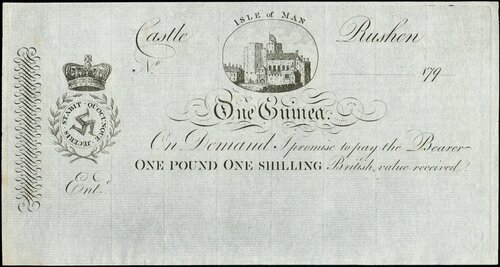 ISLE of MAN
Castle Rushen
No. 179
QUOCUNQUE JECERIS STABIT
One Guinea.
On Demand I promise to pay the Bearer
ONE POUND ONE SHILLING British, value received.
Ent.d